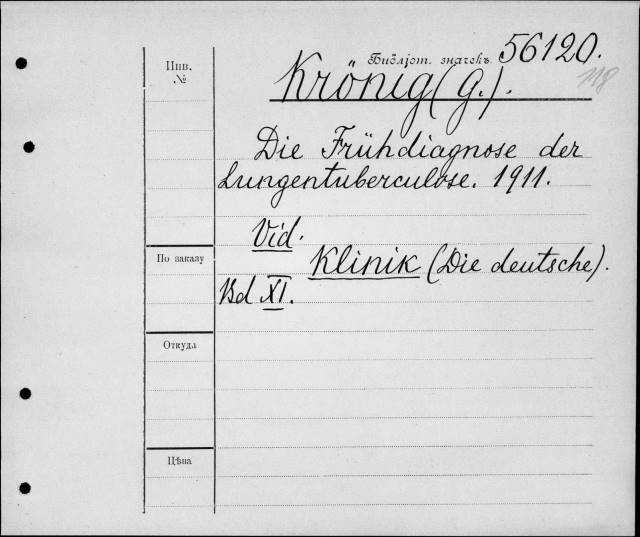 Библіот. значекъ 56120.
118
Инв.
№
Krönig (G.).
Die Frühdiagnose der
Lungentuberculose. 1911.
Vid.
По заказу
Klinik (Die deutsche).
Bd XI.
Откуда
Цѣна